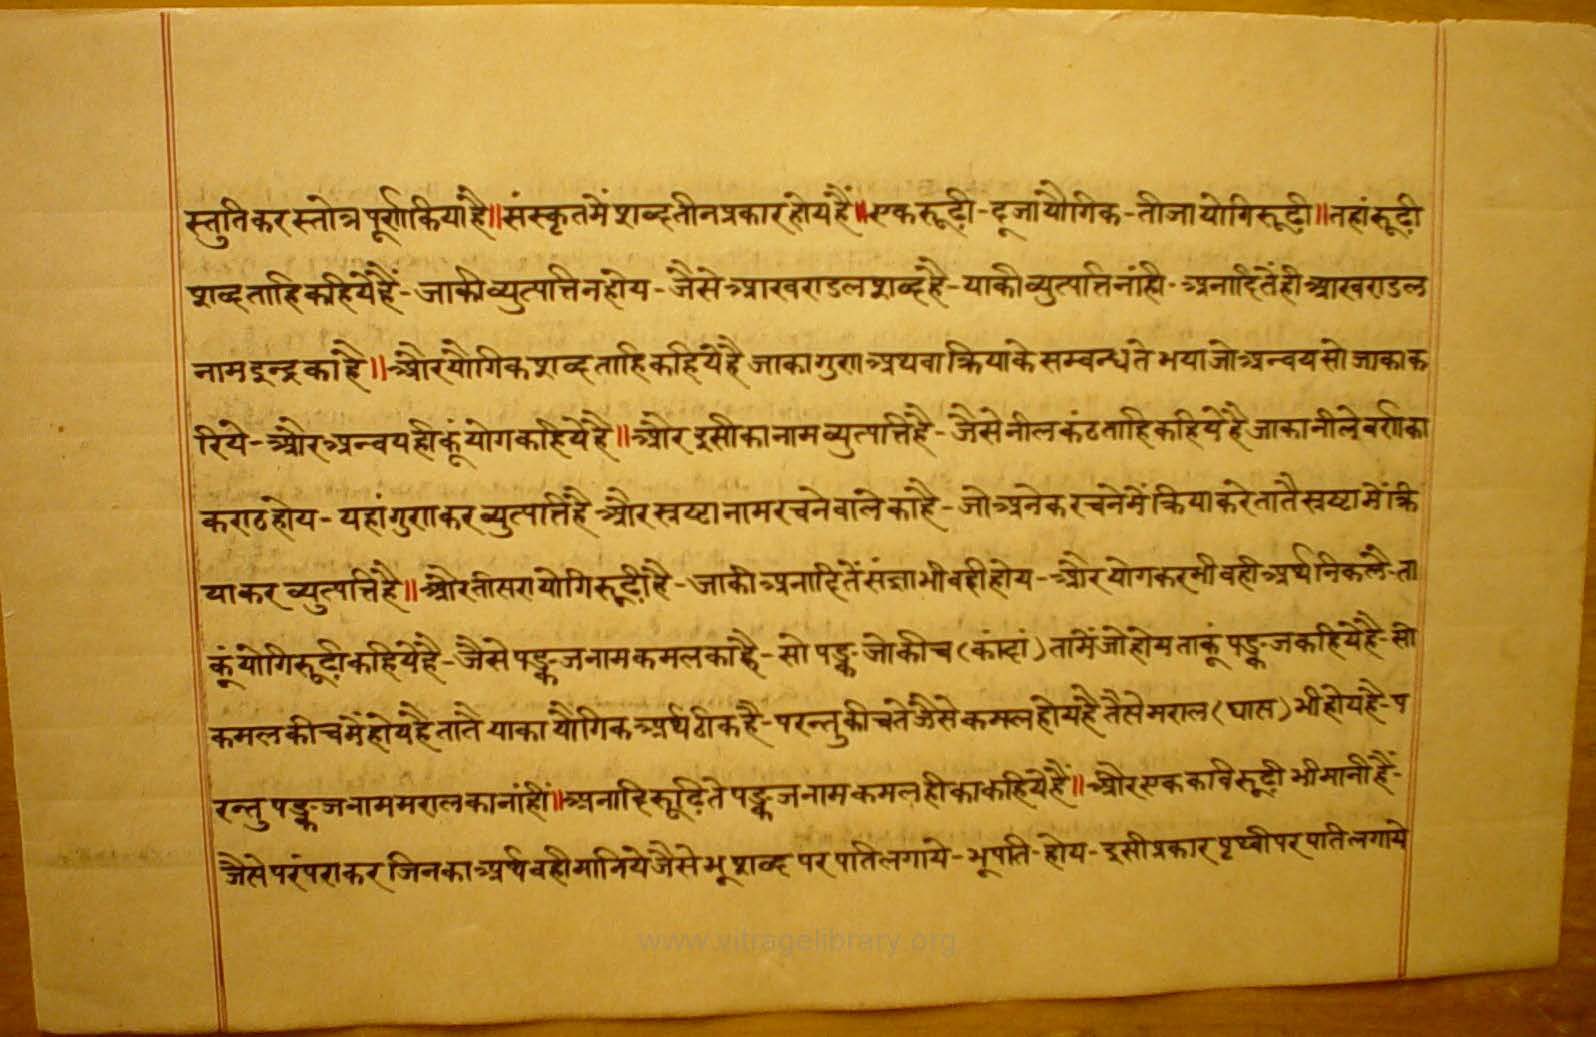 स्तुतिकर स्तोत्र पूर्ण किया है॥ संस्कृतमें शब्द तीन प्रकार होय हैं॥ एक रूढ़ी - दूजा यौगिक - तीजा योगिरूढ़ी॥ तहां रूढ़ी
शब्द ताहि कहिये हैं - जाकी व्युत्पत्ति न होय - जैसे आखण्डल शब्द है - याकी व्युत्पत्ति नांही - अनादितें ही आखण्डल
नाम इन्द्र का है॥ और यौगिक शब्द ताहि कहिये है जाका गुण अथवा क्रियाके सम्बन्धते भया जो अन्वय सो जाका क
रिये - और अन्वय ही कूं योग कहिये है॥ और इसीका नाम व्युत्पत्ति है - जैसे नीलकंठ ताहि कहिये है जाका नीले वर्ण का
कण्ठ होय - यहां गुण कर व्युत्पत्ति है और स्रष्टा नाम रचनेवाले का है - जो अनेक रचनेमें क्रिया करे तातै स्रष्टा में क्रि
या कर व्युत्पत्ति है॥ और तीसरा योगिरूढ़ी है - जाकी अनादितें संज्ञा भी वही होय - और योग कर भी वही अर्थ निकलै - ता
कूं योगिरूढ़ी कहिये है - जैसे पङ्कज नाम कमल का है - सो पङ्क जो कीच (कांदां) तामें जो होय ताकूं पङ्कज कहिये है - सो
कमल कीचमें होय है तातै याका यौगिक अर्थ ठीक है - परन्तु कीचते जैसे कमल होय है तैसे मराल (घास) भी होय है - प
रन्तु पङ्कज नाम मराल का नांहीं॥ अनादि रूढ़िते पङ्कज नाम कमल ही का कहिये है॥ और एक कवि रूढ़ी भी मानी है -
जैसे परंपरा कर जिनका अर्थ वही मानिये जैसे भू शब्द पर पति लगाये - भूपति - होय - इसी प्रकार पृथ्वी पर पति लगाये
www.vitragelibrary.org